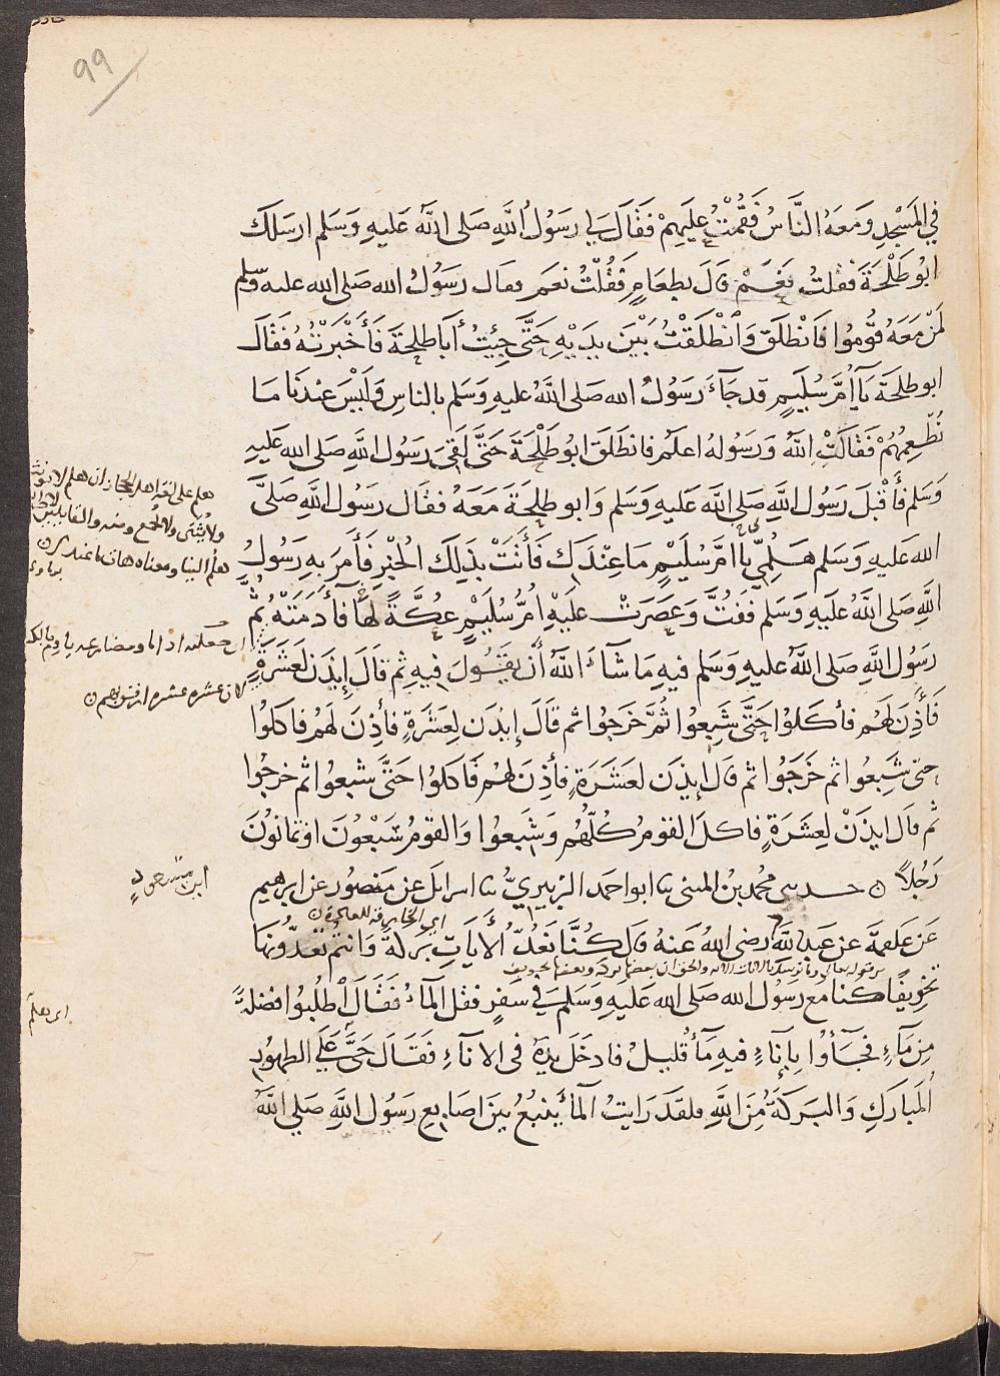 99
في المَسْجِدِ وَمَعَهُ النَّاسُ فَقُمْتُ عَلَيهِمْ فَقَالَ لي رسَوُلُ اللَّهِ صَلى اللَّه عَليهِ وَسَلم ارسَلكَ
ابوُ طَلْحَةَ فقلتُ نَعَمْ قالَ بطعَامٍ فَقُلْتُ نعَم فقال رسَوُلُ الله صَلى الله عليه وسلم
لمَنْ مَعَهُ قُومُوا فَانْطلَقَ وَانْطَلَقْتُ بَيْنَ يدَيْهِ حَتَّى جِئِتُ أبَا طلحَةَ فَأَخْبَرْتُهُ فقَالَ
ابو طلحَة يَا أُمَّ سُلَيمٍ قد جَآءَ رَسَوُلُ الله صَلى اللَّهُ عليهِ وَسَلم بالناسِ وَلَيْسَ عنْدَنَا مَا
نُطْعِمُهُمْ فَقَالَتِْ اللَّهُ وَرَسُولهُ اعلَم فانطَلَقَ ابوُ طَلْحَةَ حَتَّى لَقىَ رَسَوُل اللَّهِ صَلى الله عَليهِ
وَسَلم فأَقْبَلَ رَسَوُل اللَّهِ صَلى اللَّه عَليهِ وَسَلم وَابو طلحَةَ مَعَهُ فقَال رَسَوُل اللَّهِ صَلىَّ
الله عَليهِ وَسَلم هَلُمِّي يا امَّ سُلَيْمٍ مَا عِنْدَكِ فَأَتَتْ بذَلِكَ الخُبْزِ فَأَمَرَ بهِ رسَوُلُ
اللَّهِ صَلى اللَّهُ عَليَهِ وَسَلم فَفُتَّ وَعَصَرَتْ عليَهِ اُمُّ سُلَيْمٍ عكَّةً لهَا فَأَدَمَتْهُ ثُمَّ
رَسَوُل اللَّهِ صَلى اللَّهُ عَليهِ وَسَلم فيهِ مَا شَآءَ اللَّهُ أنْ يَقُولَ فيهِ ثم قَالَ إِيذَن لعَشَرَةٍ
فَأَذِنَ لَهُم فأكَلوُا حَتَّى شَبِعوُا ثُمَّ خَرَجوُا ثم قَالَ إيذَن لِعَشَرَةٍ فأذِنَ لَهُم فاكلَوُا
حتى شَبِعُوا ثم خَرَجُوا ثم قال ايذَن لعَشَرَةٍ فأذِنَ لهُم فَاكلَوُا حَتَّى شبعوُا ثم خرجُوا
ثم قال ايذَنْ لِعِشَرَةٍ فاكلَ القومُ كُلّهُم وَشَبِعوُا وَالقومُ سَبْعُونَ او ثمانوُنَ
رَجُلاً ن حدثنى محُمد بنُ المثنى نا ابو احمَد الزبيريُّ نا اسرايلَ عن مَنصُور عن ابرهيم
عَن علقمَةَ عن عَبدِاللَّهِ رضى اللَّهُ عَنهُ قال كُنَّا نَعُدُّ الأَيَاتِ بَركةً وَانتمُ تَعدُّونهَا
تخويفًا كنا مَع رسَوُل الله صَلى الله عَليهِ وَسَلمَ في سَفرٍ فقلَ المآءُ فَقَالَ اطْلبُوا فَضلةً
مِن مَآءٍ فجَآؤُا بِإنَآءٍ فيهِ مَآءٌ قليلٌ فادخَلَ يدَهُ فى الانآءِ فَقَالَ حَىَّ عَلَى الطهوُرِ
المُبَارَكِ وَالبَركَةُ مِنَ اللَّهِ فلقَد رَايتُ المآءَ يَنبُعُ بينَ اصَابِع رَسَوُل اللَّهِ صَلىَ اللَّهُ
هلم على لغة اهل الحجاز ان هلم لا يؤنث
ولا يُثنى ولا يُجمع ومنه
هلم الينا ومعناه هات ما عندك
ابن مسعودٍ